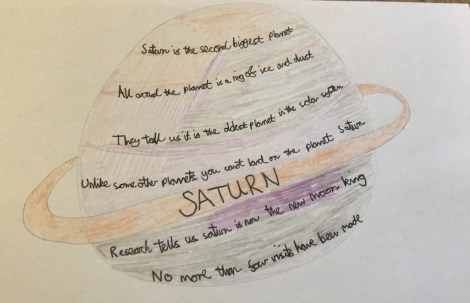 Saturn is the second biggest planet
All around the planet is a ring of ice and dust
They tell us it is the oldest planet in the solar system
Unlike some other planets you cant land on the planet Saturn
SATURN
Research tells us saturn is now the new moon king
No more than four visits have been made